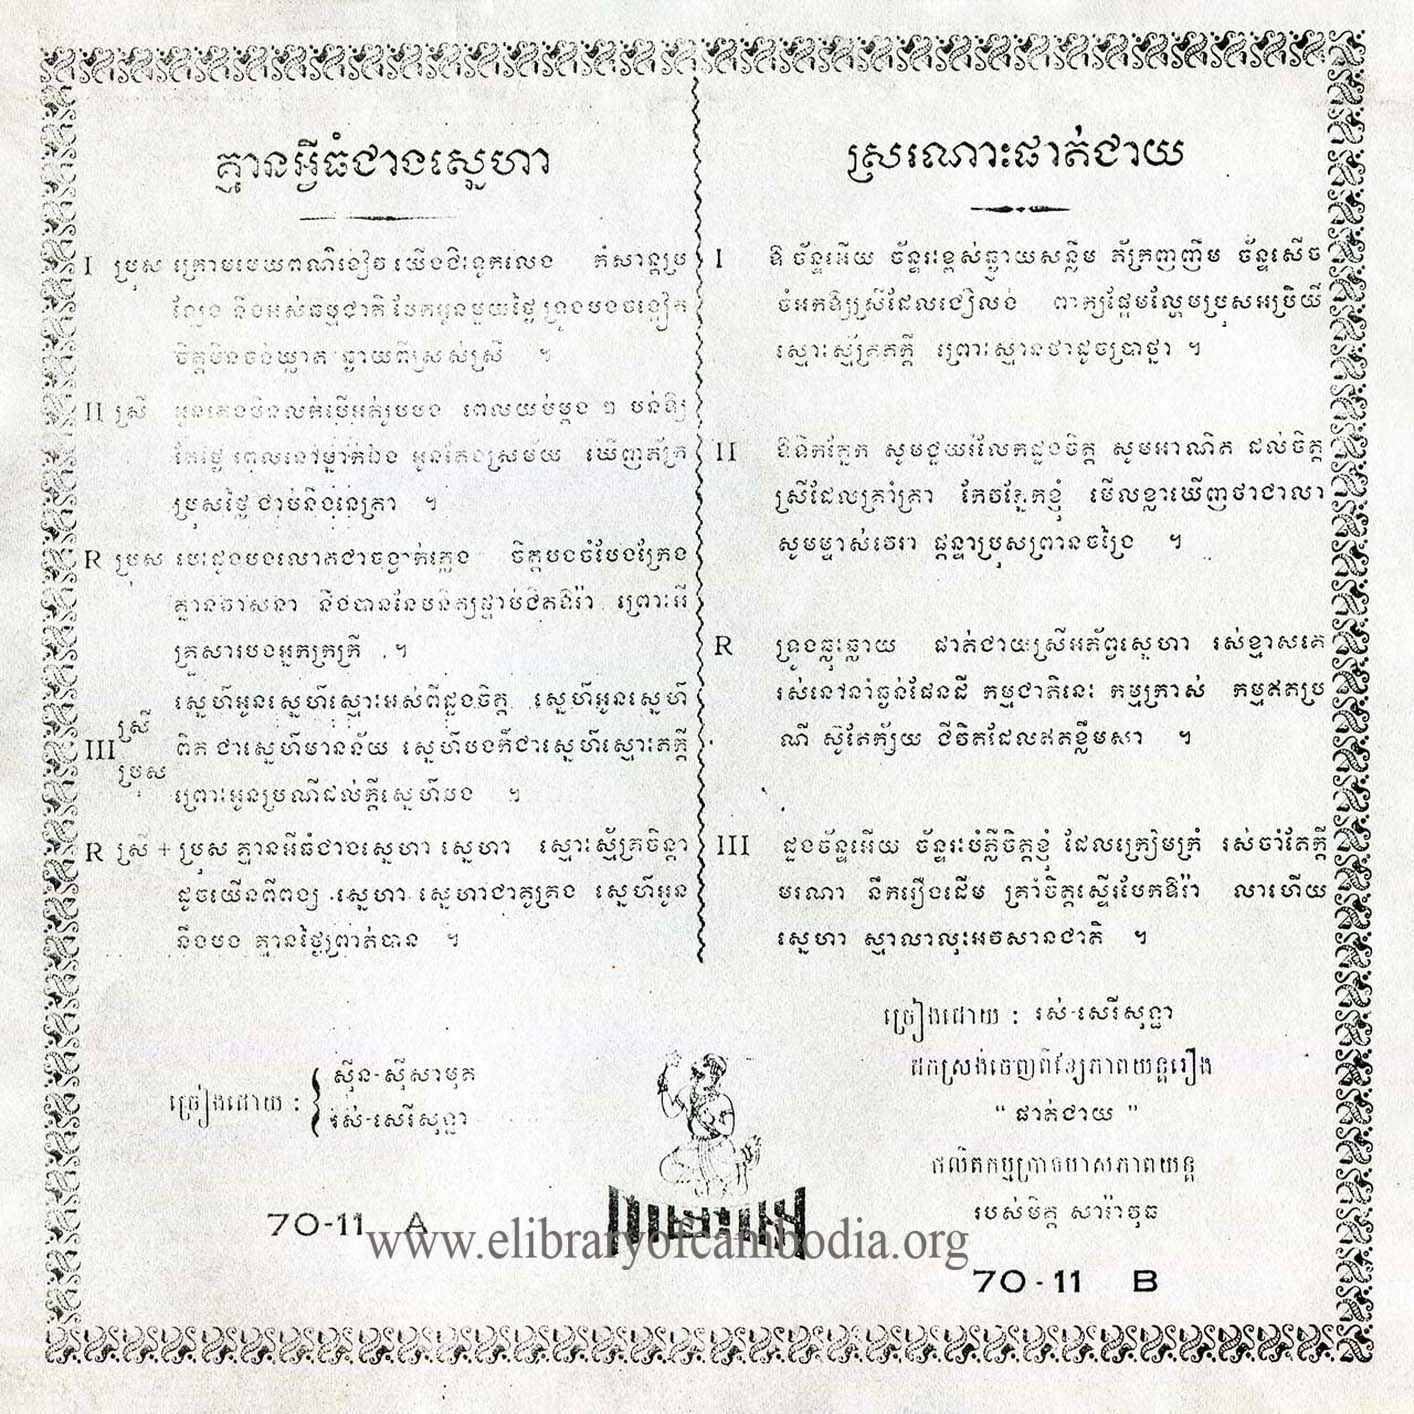 គ្មានអ្វីធំជាងស្នេហា
I ប្រុស ក្រោមមេឃពណ៌ខៀវ យើងជិះទូកលេង កំសាន្តប្រ
ឡែង និងអស់ធម្មជាតិ បែកអូនមួយថ្ងៃ ទ្រូងបងចង្អៀត
ចិត្តមិនចង់ឃ្លាត ឆ្ងាយពីស្រស់ស្រី ។
II ស្រី អូនគេងមិនលក់បើអត់រូបបង ពេលយប់ម្តង ៗ បន់ឱ្យ
តែថ្ងៃ ពេលនៅម្នាក់ឯង អូនតែងស្រមៃ ឃើញភ័ក្រ
ប្រុសថ្លៃ ជាប់នឹងនេត្រា ។
R ប្រុស បេះដូងបងលោតជាចង្វាក់ភ្លេង ចិត្តបងចំបែងក្រែង
គ្មានវាសនា នឹងបាននែបនិត្យផ្ទាប់ជិតឱរ៉ា ព្រោះអី
គ្រួសារបងអ្នកក្រក្រី ។
ស្នេហ៍អូនស្នេហ៍ស្មោះអស់ពីដួងចិត្ត ស្នេហ៍អូនស្នេហ៍
III ស្រី ប្រុស ពិត ជាស្នេហ៍មានន័យ ស្នេហ៍បងក៏ជាស្នេហ៍ស្មោះឥតក្តី
ព្រោះអូនប្រណីដល់ក្តីស្នេហ៍បង ។
R ស្រី + ប្រុស គ្មានអីធំជាងស្នេហា ស្នេហា ស្មោះស្ម័គ្រចិន្តា
ដូចយើងពីពង្ស ស្នេហា ស្នេហាជាគូគ្រង ស្នេហ៍អូន
និងបង គ្មានថ្ងៃព្រាត់បាន ។
ច្រៀងដោយ : ស៊ីន-ស៊ីសាមុត
រស់-សេរីសុទ្ធា
70-11 A
ស្រណោះផាត់ជាយ
I ឱ ច័ន្ទអើយ ច័ន្ទរះខ្ពស់ឆ្ងាយសន្លឹម ភ័ក្រញញឹម ច័ន្ទសើច
ចំអកឱ្យស្រីដែលជឿលង់ ពាក្យផ្អែមល្ហែមប្រុសអប្រិយ៍
ស្មោះស្ម័គ្រឥតក្តី ព្រោះស្មានថាដូចប្រាថ្នា ។
II ឱទឹកភ្នែក សូមជួយរំលែកដួងចិត្ត សូមអាណិត ដល់ចិត្ត
ស្រីដែលគ្រាំគ្រា កែវភ្នែកខ្ញុំ មើលខ្លាឃើញថាជាលា
សូមម្ចាស់វេរា ផ្តន្ទាប្រុសព្រានចង្រៃ ។
R ទ្រូងធ្លុះធ្លាយ ផាត់ជាយស្រីអភ័ព្វស្នេហា រស់ខ្មាសគេ
រស់នៅនាំធ្ងន់ផែនដី កម្មជាតិនេះ កម្មក្រាស់ កម្មឥតប្រ
ណី ស៊ូតែក្ស័យ ជីវិតដែលឥតខ្លឹមសា ។
III ដួងច័ន្ទអើយ ច័ន្ទរះបំភ្លឺចិត្តខ្ញុំ ដែលក្រៀមក្រំ រស់ចាំតែក្តី
មរណា នឹករឿងដើម គ្រាំចិត្តស្ទើរបែកឱរ៉ា លាហើយ
ស្នេហា ស្មាលាលុះអវសានជាតិ ។
ច្រៀងដោយ : រស់-សេរីសុទ្ធា
ដកស្រង់ចេញពីខ្សែភាពយន្តរឿង
" ផាត់ជាយ "
ផលិតកម្មប្រាថមាសភាពយន្ត
របស់មិត្ត សារ៉ាវុធ
70-11 B
www.elibraryofcambodia.org